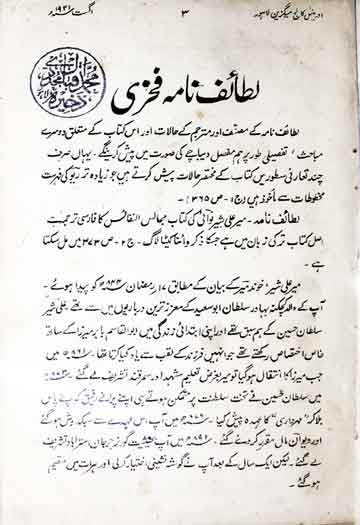 اورینٹل کالج میگزین لاہور ۳ اگست ۱۹۳۱ء
لطائف نامہ فخری
لطائف نامہ کے مصنف اور مترجم کے حالات اور اس کتاب کے متعلق دوسرے
مباحث تفصیلی طور پر ہم مفصل دیباچے کی صورت میں پیش کرینگے۔ یہاں صرف
چند تعارفی سطور میں کتاب کے مختصر حالات پیش کرتے ہیں جو زیادہ تر ریو کی فہرست
مخطوطات سے مأخوذ ہیں (ج ۱۔ ص ۳۶۵)
لطائف نامہ۔ میر علی شیر نوائی کی کتاب مجالس النفائس کا فارسی ترجمہ ہے۔
اصل کتاب ترکی زبان میں ہے جسکا ذکر کٹیلاگ۔ ج ۲۔ ص ۳۷۳ میں مل سکتا
ہے۔
میر علی شیر، خوند میر کے بیان کے مطابق ۱۷ رمضان ۸۴۴ھ کو پیدا ہوئے۔
آپ کے والد کچکنہ بہادر سلطان ابو سعید کے معزز ترین درباریوں میں سے تھے۔ علی شیر
سلطان حسین کے ہم سبق تھے اور اپنی ابتدائی زندگی میں ابوالقاسم بابر میرزا کے ساتھ
خاص اختصاص رکھتے تھے جو انہیں فرزند کے لقب سے یاد کیا کرتا تھا۔ ۸۶۱ھ میں
جب میرزا کا انتقال ہوگیا تو میر بغرض تعلیم مشہد اور سمرقند تشریف لے گئے۔
میں سلطان حسین نے تخت سلطنت پر متمکن ہوتے ہی اپنے پرانے رفیق کو اپنے پاس
بلا کر "مہرداری" کا عہدہ پیش کیا۔ میں آپ اس عہدے سے سبکدوش ہوگئے
اور دیوان مال مقرر کر دیے گئے۔ میں آپ بحیثیت گورنر جرجان استرآباد تشریف
لے گئے۔ لیکن ایک سال کے بعد آپ نے گوشہ نشینی اختیار کرلی اور ہرات میں مقیم
ہوگئے۔